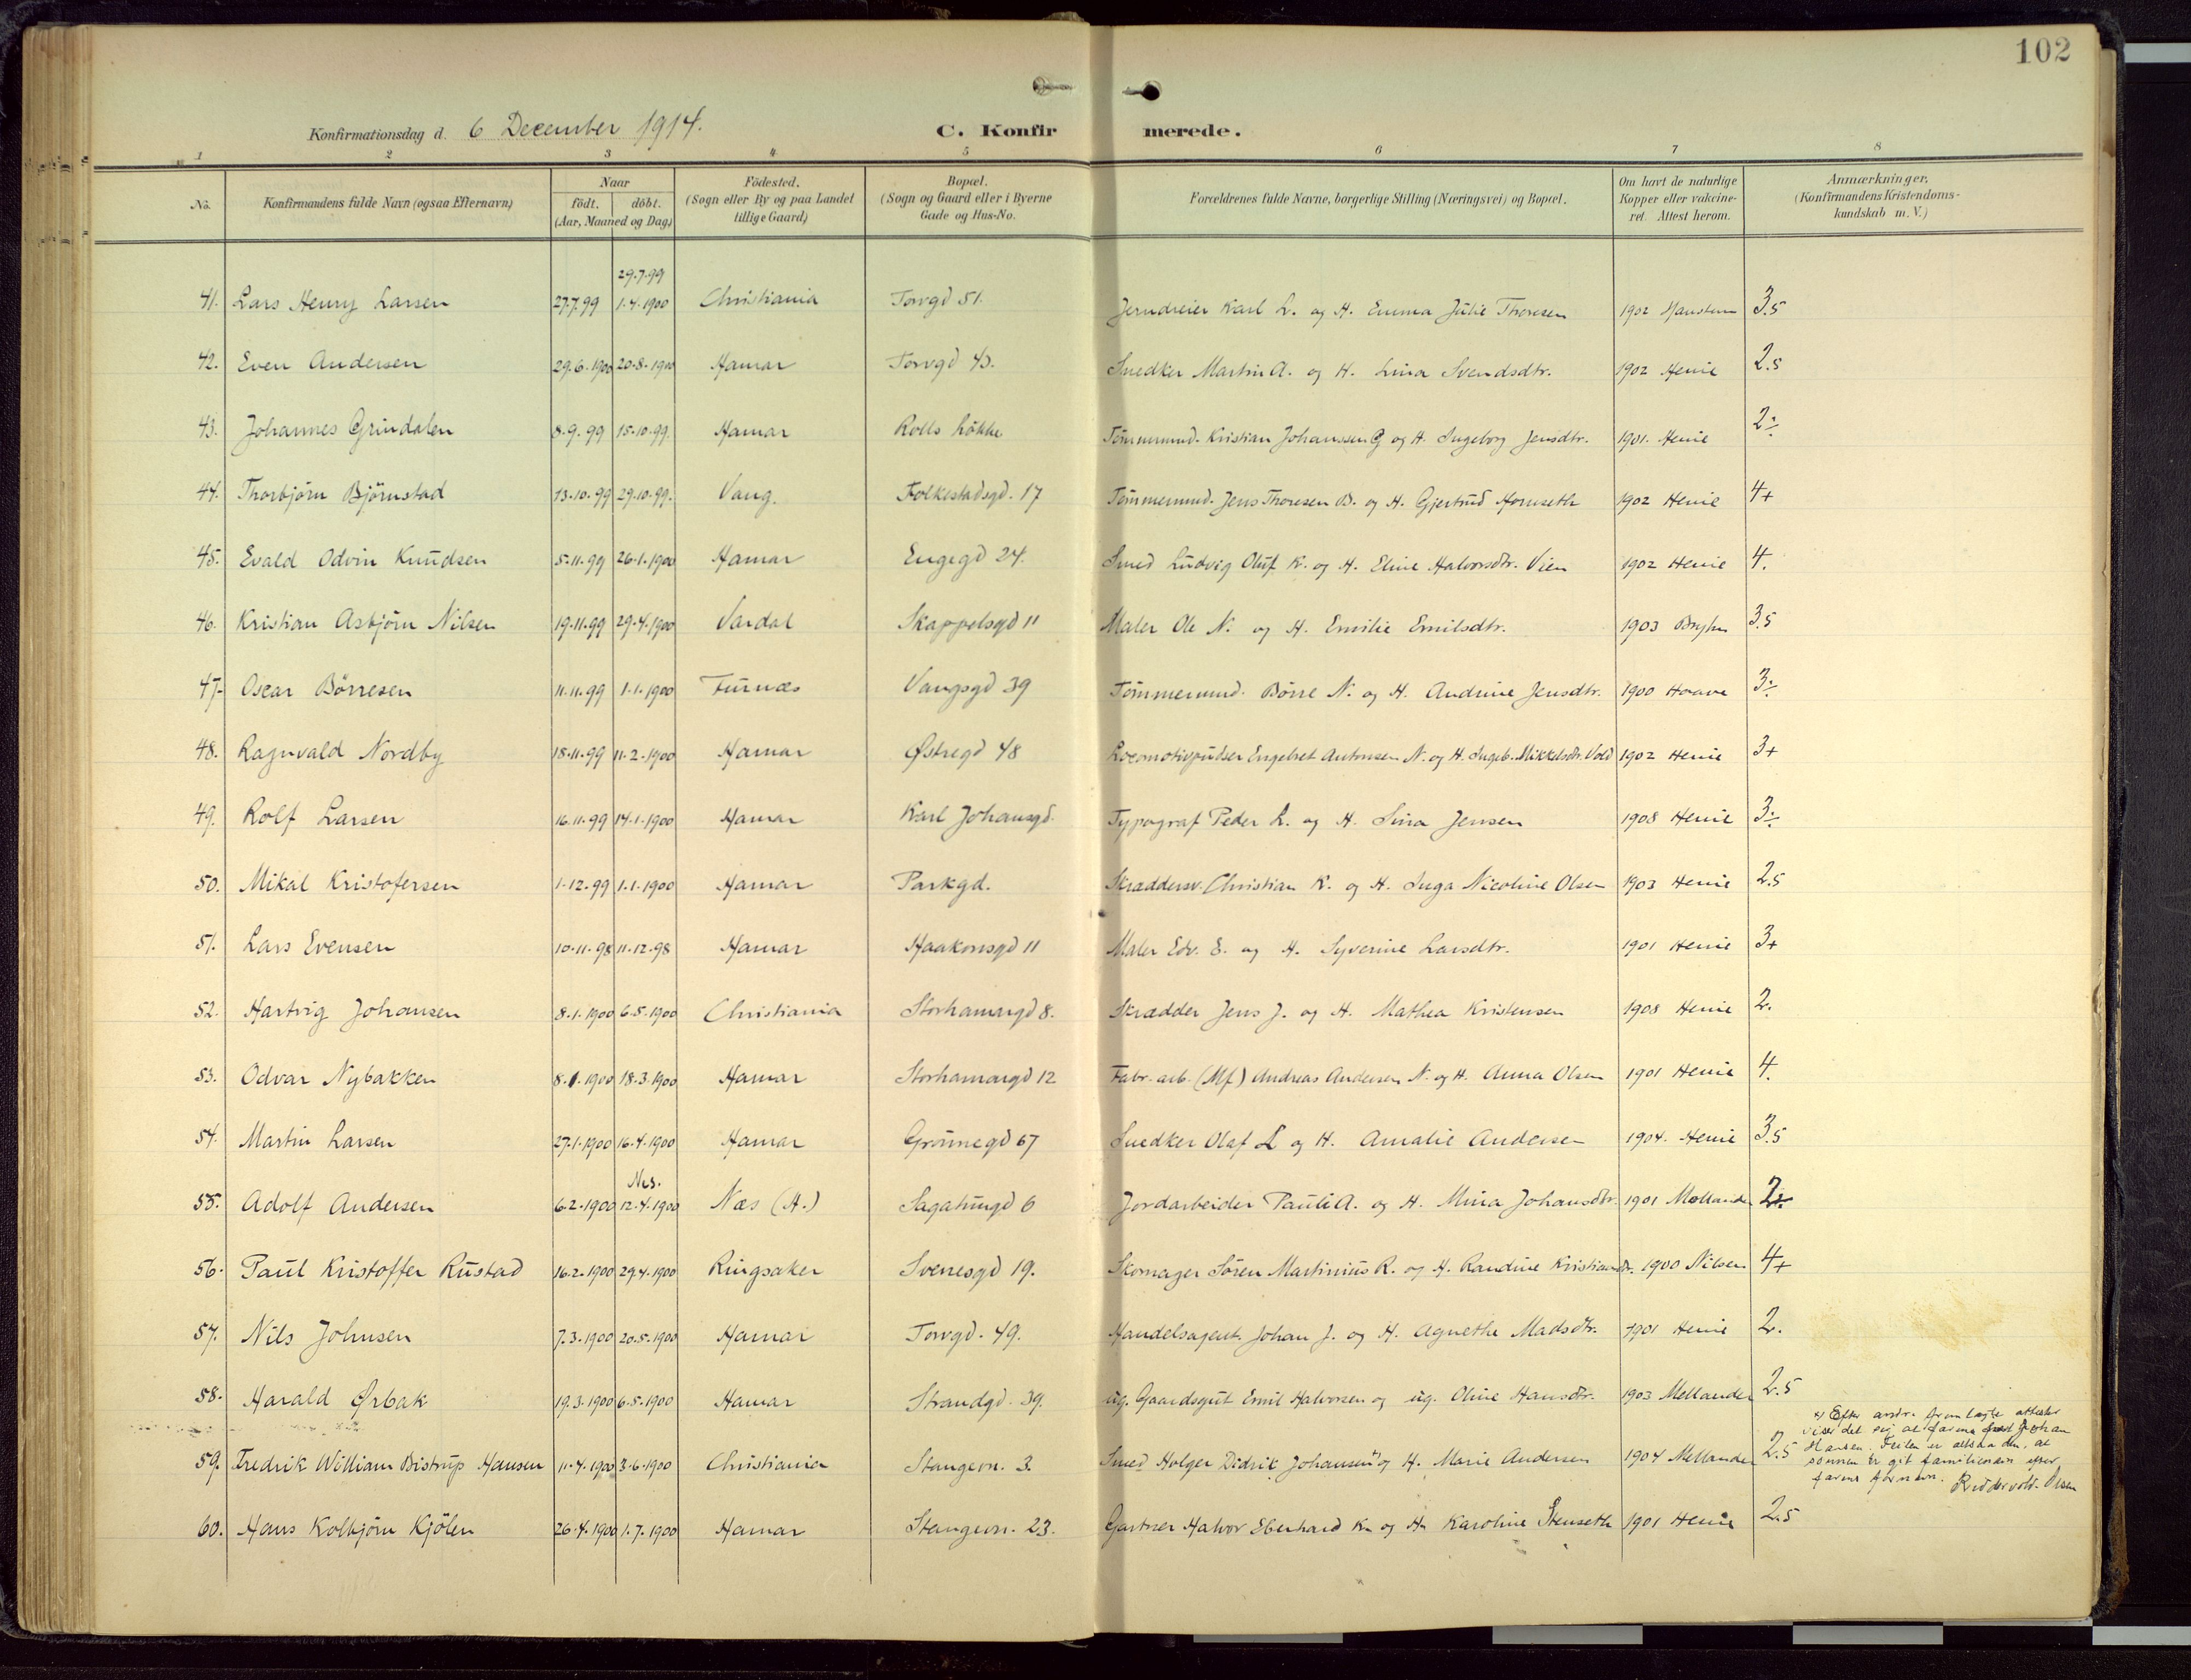 102
Konfirmationsdag d. 6 December 1914. C. Konfirmerede.
1 2 3 4 5 6 7 8
No. Konfirmandens fulde Navn (ogsaa Efternavn) Naar födt. döbt. (Aar, Maaned og Dag) Födested. (Sogn eller By og paa Landet tillige Gaard) Bopæl. (Sogn og Gaard eller i Byerne Gade og Hus-No. Forældrenes fulde Navne, borgerlige Stilling (Næringsvei) og Bopæl. Om havt de naturlige Kopper eller vakcineret. Attest herom. Anmærkninger. (Konfirmandens Kristendomskundskab m. V.)
29.7.99
41. Lars Henry Larsen 27.7.99 1.4.1900 Christiania Torvgd 51. Jerndreier Karl L. og H. Emma Julie Thoresen 1902 3.5
42. Even Andersen 29.6.1900 20.8.1900 Hamar Torvgd 43. Snedker Martin A. og H. Lina Svendsdtr. 1902 Henie 2.5
43. Johannes Grindalen 8.9.99 15.10.99. Hamar Rolls løkke Tømmermd. Kristian Johanssen G og H. Ingeborg Jensdtr. 1901. Henie 2÷
44. Thorbjørn Bjørnstad 13.10.99 29.10.99. Vang. Folkestadsgd. 17 Tømmermd. Jens Thoresen B. og H. Gjertrud Hornseth 1902 Henie 4+
45. Evald Odvin Knudsen 5.11.99 26.1.1900 Hamar Engegd 24. Smed Ludvig Oluf K. og H. Eline Halvorsdtr. Vien 1902 Henie 4.
46. Kristian Asbjørn Nilsen 19.11.99 29.4.1900 Vardal Skappelsgd 11 Maler Ole N. og H. Emilie Emilsdtr. 1903 Bryhn 3.5
47. Oscar Børresen 11.11.99 1.1.1900 Furnæs Vangsgd 39 Tømmermd. Børre N. og H. Andrine Jensdtr. 1900 Hoave 3÷
48. Ragnvald Nordby 18.11.99 11.2.1900 Hamar Østregd 48 Locomotivpudser Engebret Antonsen N. og H. Ingeb. Mikkelsdtr. Vold 1902 Henie 3+
49. Rolf Larsen 16.11.99 14.1.1900 Hamar Karl Johansgd. Typograf Peder L. og H. Lina Jensen 1908 Henie 3÷
50. Mikal Kristofersen 1.12.99 1.1.1900 Hamar Parkgd. Skræddersv. Christian K. og H. Inga Nicoline Olsen 1903 Henie 2.5
51. Lars Evensen 10.11.98 11.12.98 Hamar Haakonsgd 11 Maler Edv. E. og H. Syverine Larsdtr. 1901 Henie 3+
52. Hartvig Johansen 8.1.1900 6.5.1900 Christiania Storhamargd 8. Skrædder Jens J. og H. Mathea Kristensen 1908 Henie 2.
53. Odvar Nybakken 8.1.1900 18.3.1900 Hamar Storhamargd 12 Fabr. arb. (Mf) Andreas Andersen N. og H. Anna Olsen 1901 Henie 4.
54. Martin Larsen 27.1.1900 16.4.1900 Hamar Grønnegd 67 Snedker Olaf L og H. Amalie Andersen 1904. Henie 3.5
Nes.
55. Adolf Andersen 6.2.1900 12.4.1900 Næs (H.) Sagatungd 6 Jordarbeider Pauli A. og H. Mina Johansdtr. 1901 Mellander 2÷
56. Paul Kristoffer Rustad 16.2.1900 29.4.1900 Ringsaker Sverresgd 19. Skomager Søren Martinius R. og H. Randine Kristiansdtr. 1900 Nilsen 4+
57. Nils Johnsen 7.3.1900 20.5.1900 Hamar Torvgd. 49. Handelsagent Johan J. og H. Agnethe Madsdtr. 1901 Henie 2.
58. Harald Ørbak 19.3.1900 6.5.1900 Hamar Strandgd. 39. ug. Gaardsgut Emil Halvorsen og ug. Oline Hansdtr. 1903 Mellander 2.5
59. Fredrik William Bistrup Hansen 11.4.1900 3.6.1900 Christiania Stangevn. 3. Smed Holger Didrik Johansen x) og H. Marie Andersen 1904 Mellander 2.5
x) Efter andr. fremlagte attester
viser det sig at farens Johan
Hansen. Feilen er altsaa den, at
sønnen er git familienavn efter
farens fornavn. Riddervold-Olsen
60. Hans Kolbjørn Kjølen 26.4.1900 1.7.1900 Hamar Stangevn. 23. Gartner Halvor Eberhard K. og H. Karoline Stenseth 1901 Henie 2.5